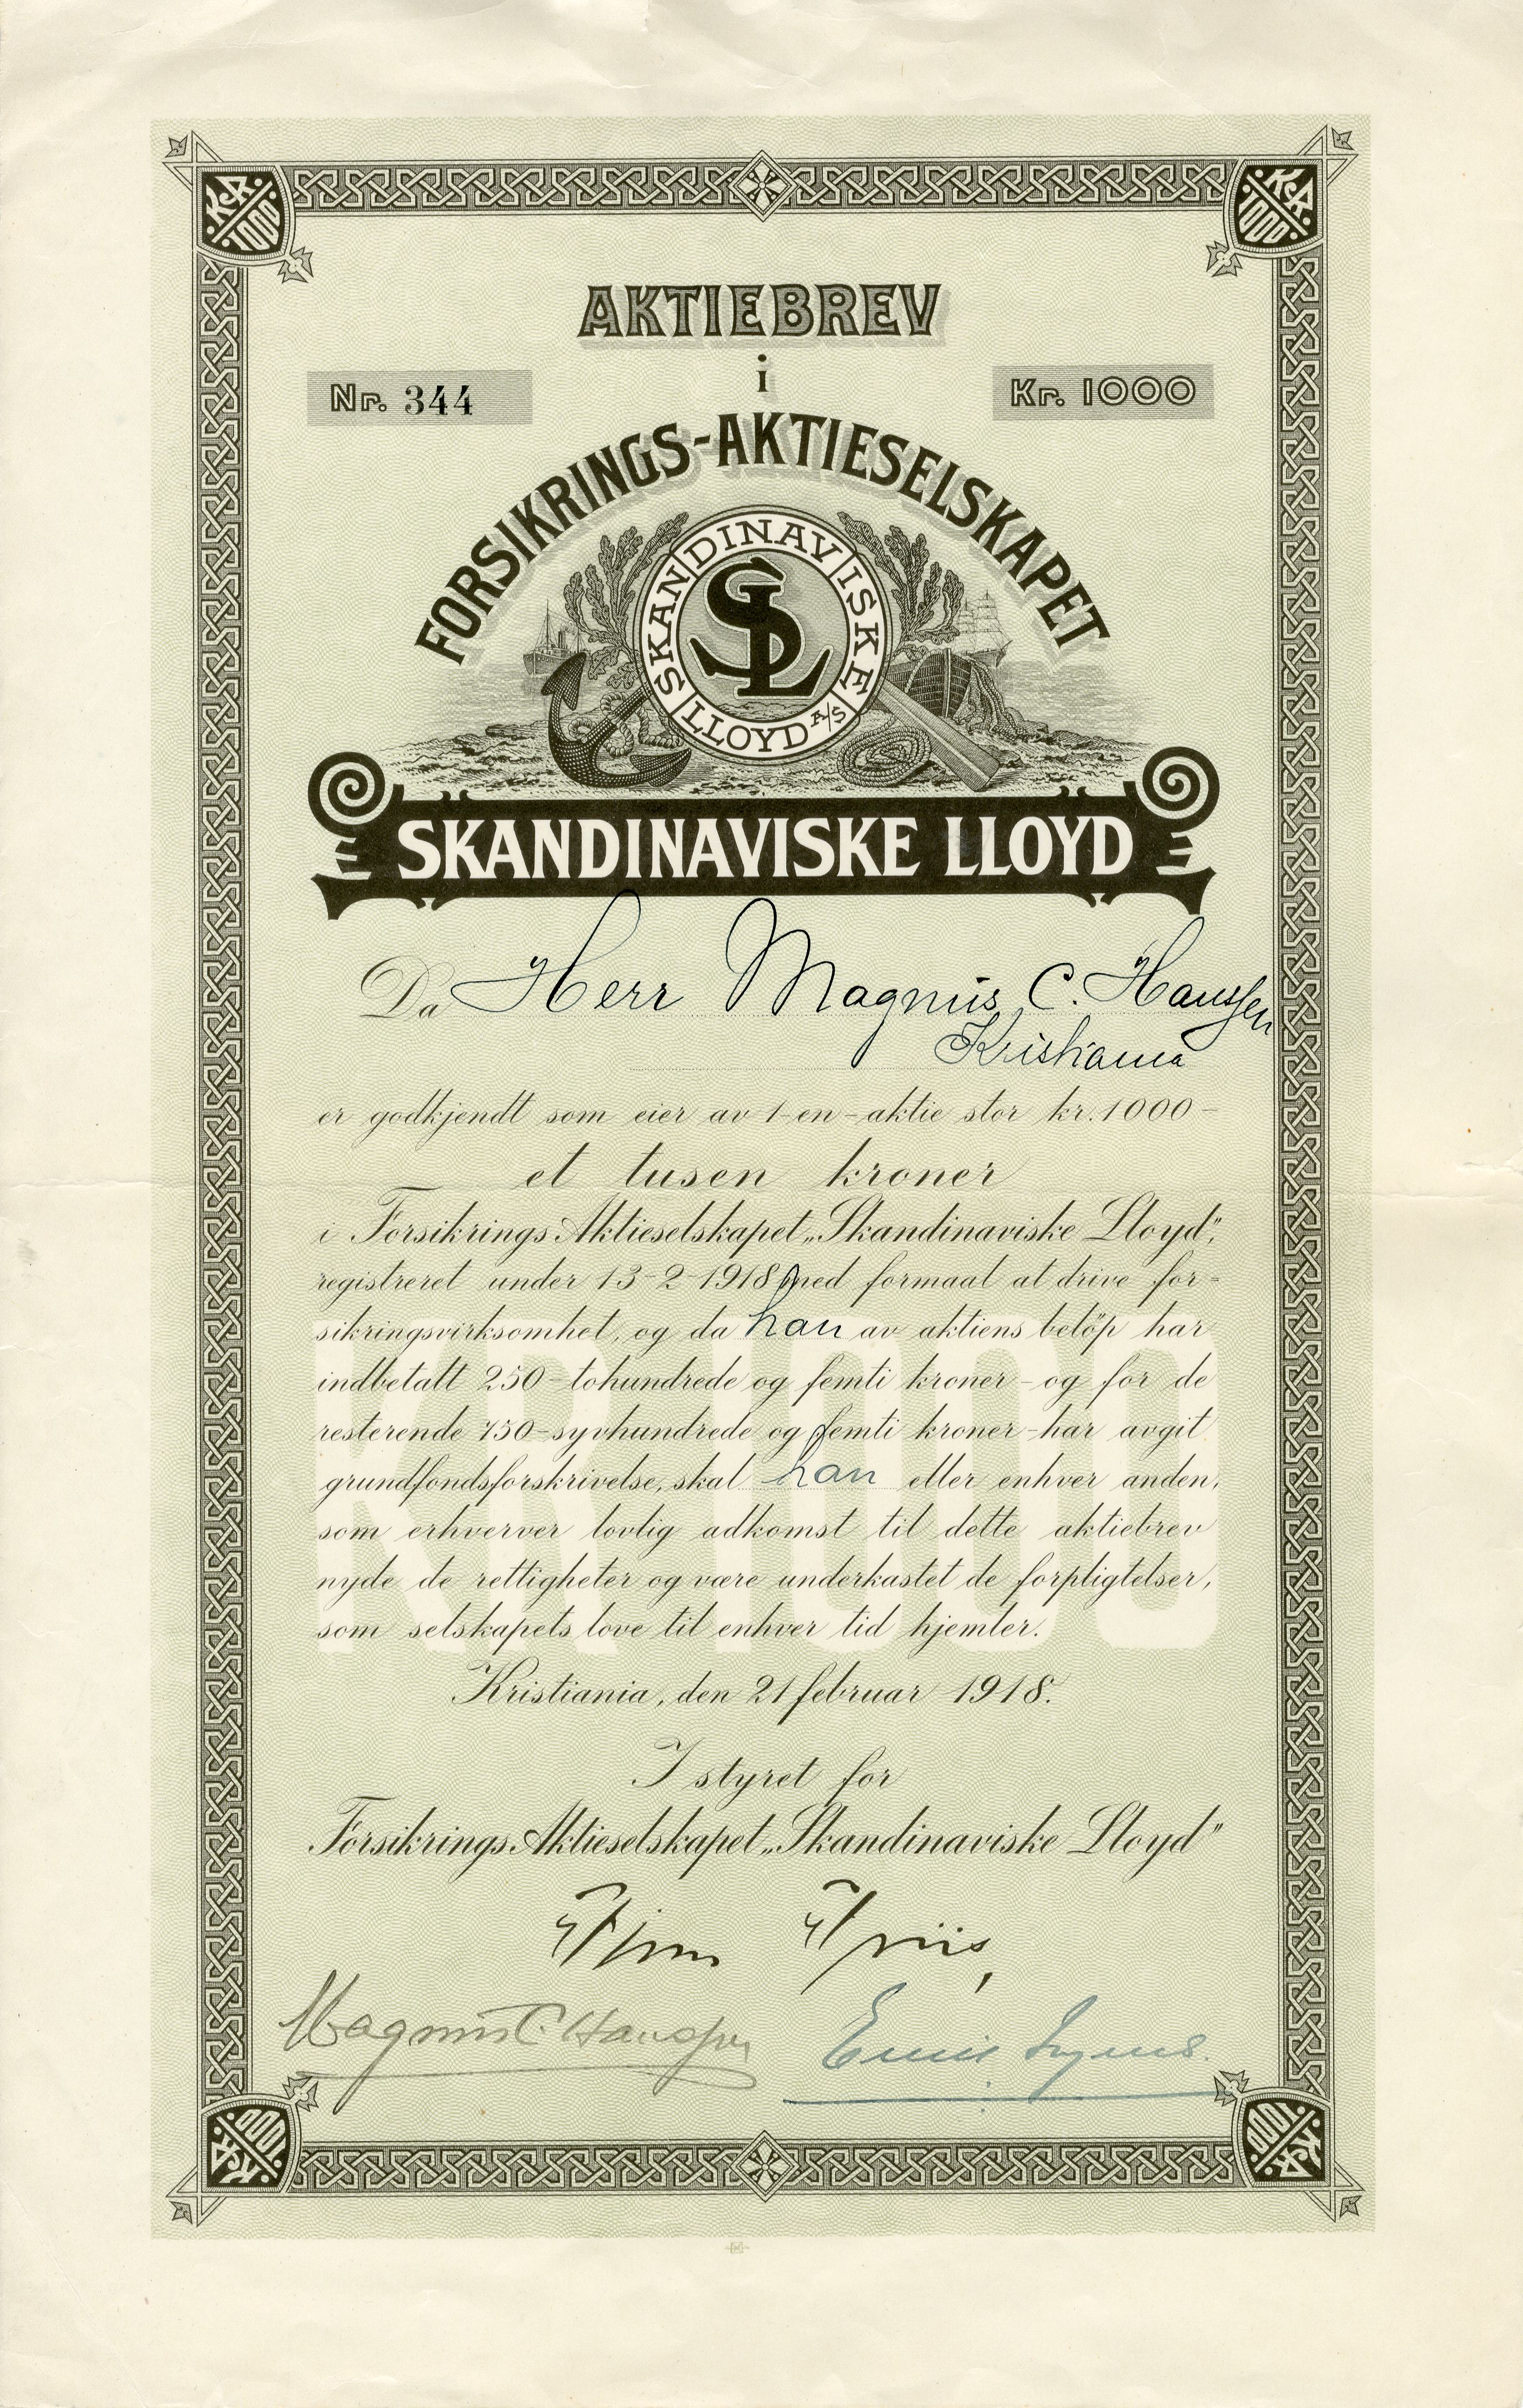 KR 1000
KR 1000
AKTIEBREV
i
Nr. 344
Kr. 1000
FORSIKRINGS-AKTIESELSKAPET
SKANDINAVISKE
LLOYD A/S
SL
SKANDINAVISKE LLOYD
Da Herr Magnus C. Hanssen
Kristiania
er godkjendt som eier av 1-en-aktie stor kr. 1000-
et tusen kroner
i Forsikrings Aktieselskapet „Skandinaviske Lloyd",
registreret under 13-2-1918 med formaal at drive for-
sikringsvirksomhet, og da han av aktiens beløp har
indbetalt 250-tohundrede og femti kroner-og for de
resterende 750-syvhundrede og femti kroner-har avgit
grundfondsforskrivelse, skal han eller enhver anden,
som erhverver lovlig adkomst til dette aktiebrev
nyde de rettigheter og være underkastet de forpligtelser,
som selskapets love til enhver tid hjemler.
KR 1000
Kristiania, den 21 februar 1918.
I styret for
Forsikrings Aktieselskapet „Skandinaviske Lloyd"
Friis
Magnus C. Hanssen
KR 1000
KR 1000